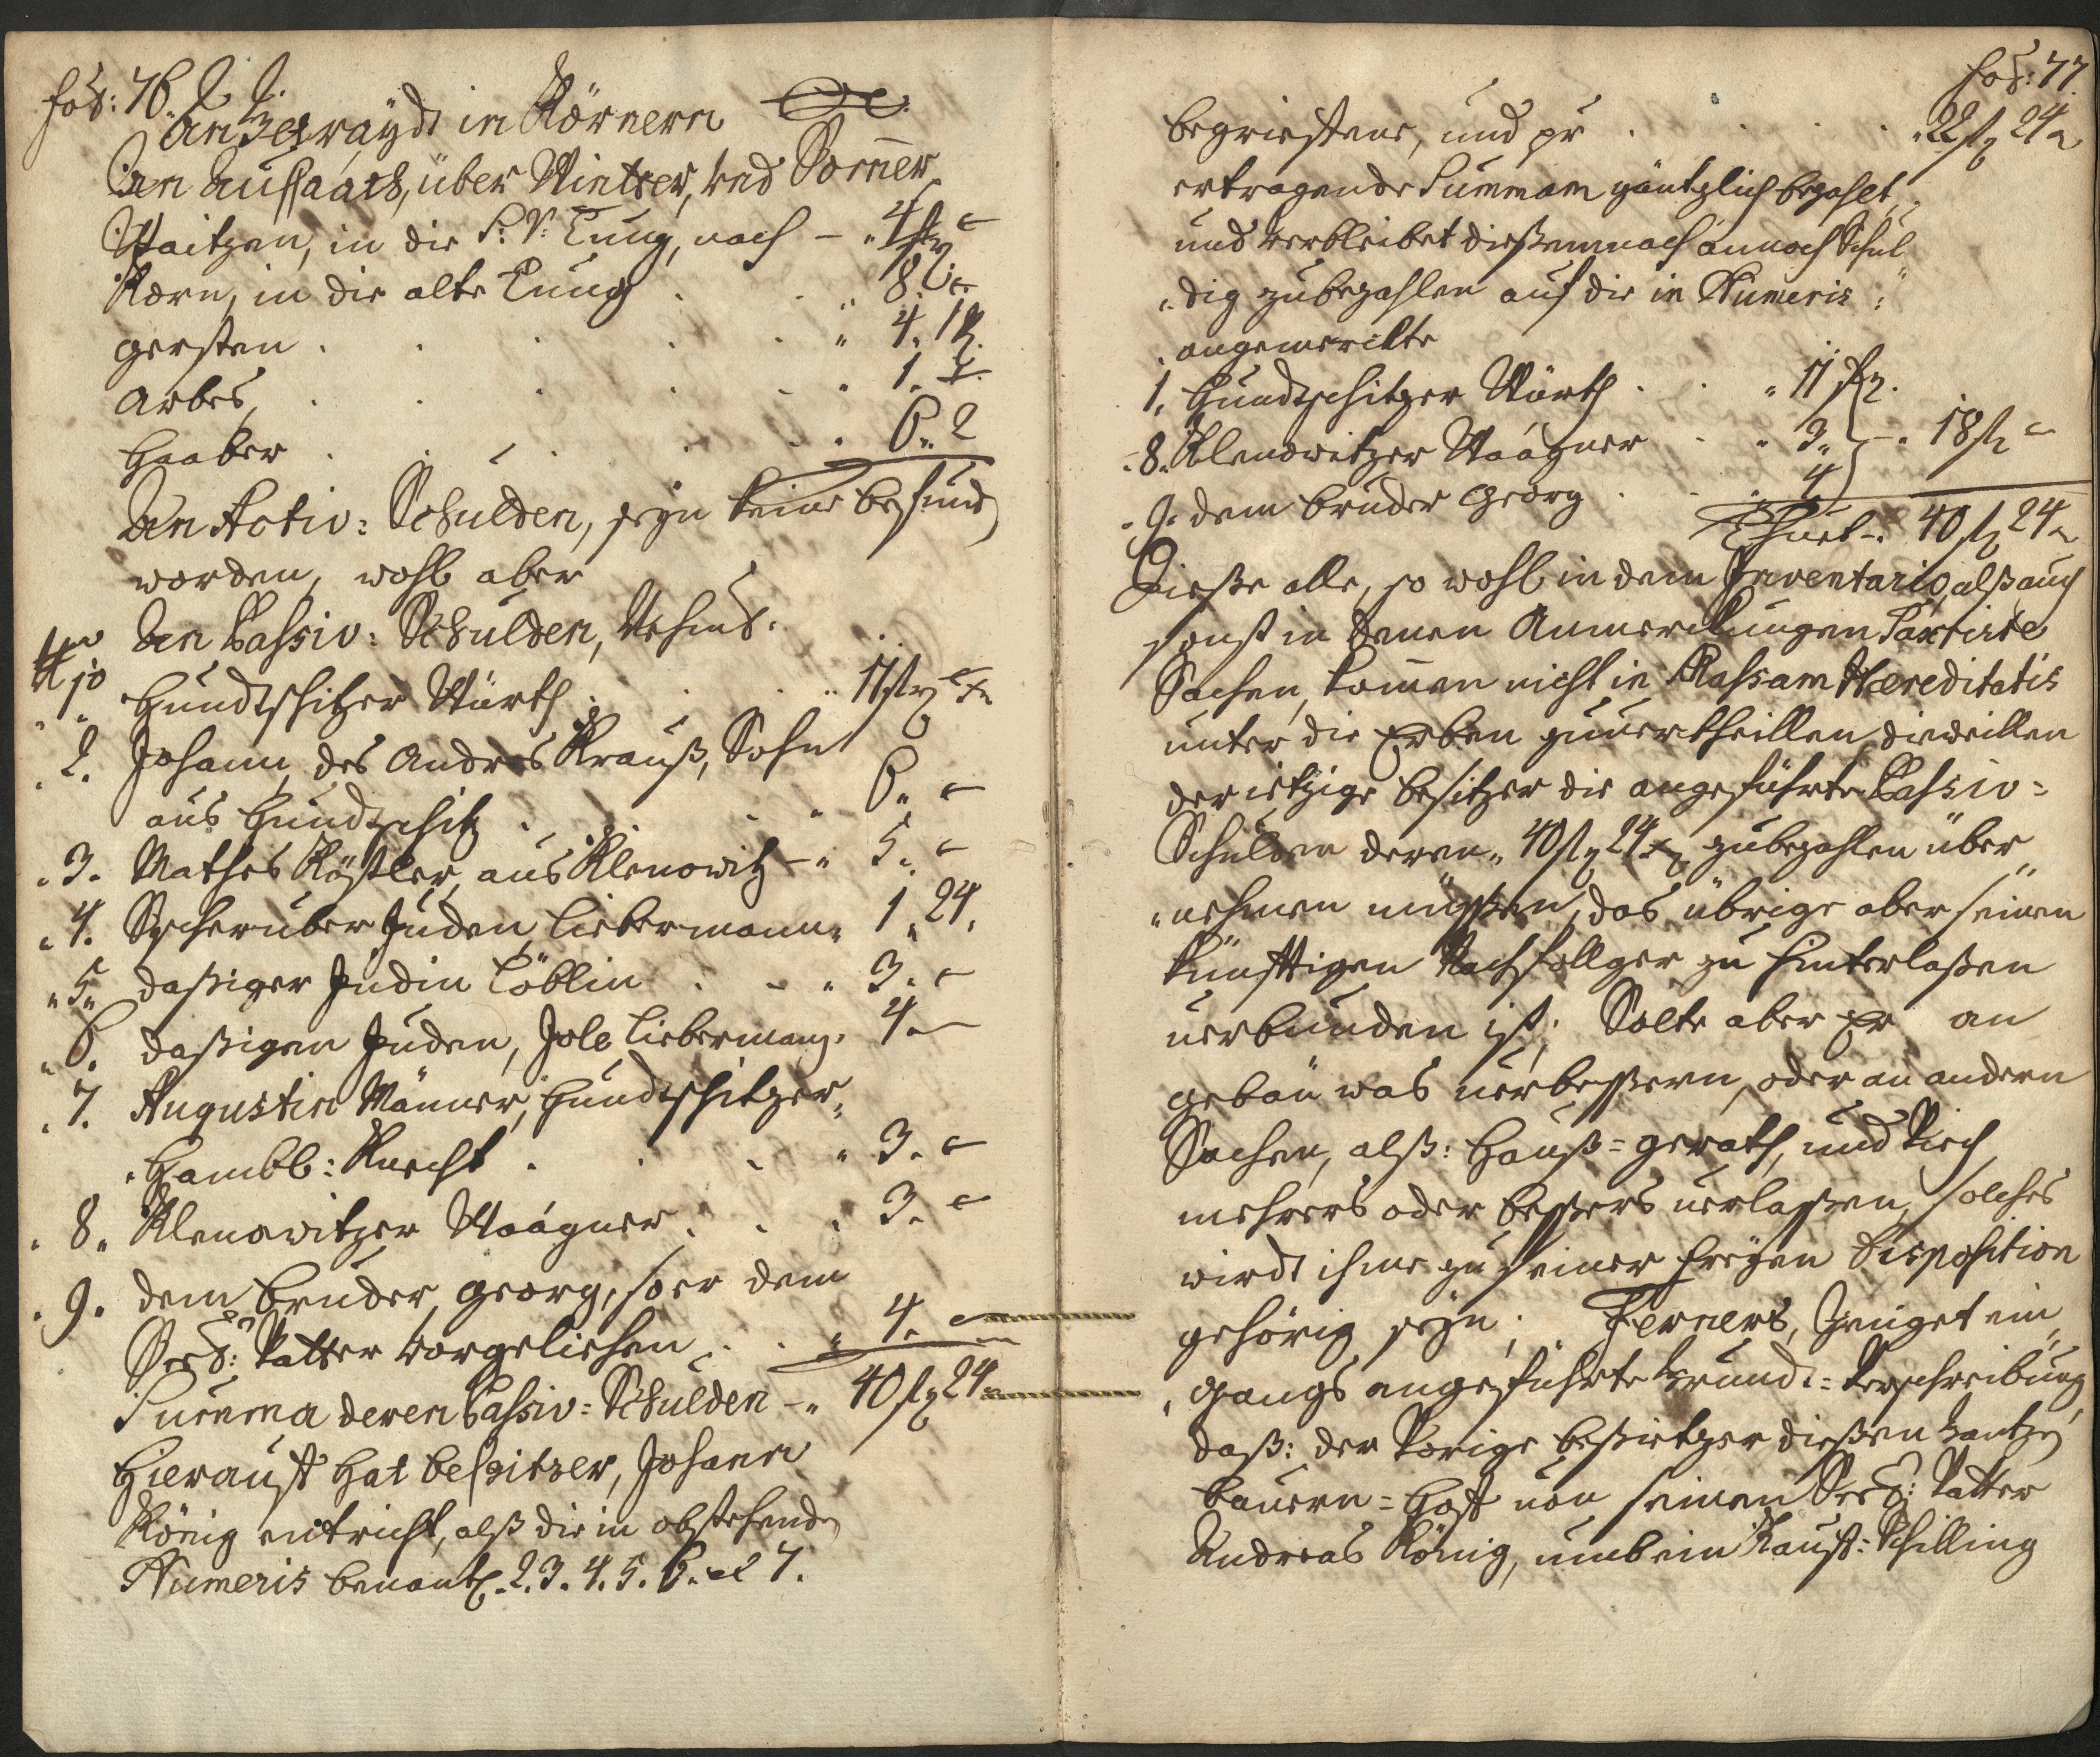 Fol: 76.
An Getraydt in Körnern
An Außsaath, über Winter, und Som̄er
Waitzen, in die S: V: Tung, nach – „ 4
Korn, in die alte Tung . . „ 8
gersten . . . . „ 4. 1
Arbes, . . . . „ 1.
Haaber . . . . . 6. 2
An Activ: Schulden, seyn keine befund
worden, wohl aber
An Passiv: Schulden,
1. Hundtschitzer Würth . . . „ 11 f
2. Johann, des Andres Krauß, Sohn
aus Hundtschitz . . . 6„ –
3. Mathes Kößler, aus Klenowitz – „ 5. –
4. Juden, Liebermann „ 1„ 24.
5„ dasiger Judin Löblin . . „ 3. –
6. dasigen Juden, Jole Liebermann. 4. –
7. Augustin Männer, Hundtschitzer„
„Hambl: Knecht . . . „ 3. –
8„ Klenowitzer Waagner . . . 3. –
9. dem Bruder, Georg, so er dem
Seel: Vatter vorgeliehen . . „ 4. –
Summa deren Passiv: Schulden – „ 40 f 24
Hierauß hat Besitzer, Johann
König entricht, alß die in obstehend
Numeris benant. 2. 3. 4. 5. 6. et 7.
Fol: 77.
begriefene, und pr . . . . „ 22 f 24
ertragende Summam gäntzlich bezahlt,
und verbleibet dießemnach annoch Schul„
„dig zubezahlen auf die in Numeris
angemerckte
1. Hundtschitzer Würth . . „ 11 f
8. Klenowitzer Waagner . . „ 3. – „ 18 f –
9. dem Bruder Georg . . „ 4
Thuet – . 40 f 24
Dieße alle, so wohl in dem Inventario, alß auch
sonst in denen Anmerckungen Taxirte
Sachen, kom̄en nicht in Massam Hæreditatis
unter die Erben zuuertheillen, dieweillen
der ietzige Besitzer die angeführte Passiv=
Schulden deren „ 40 f 24 zubezahlen über„
„nehmen müssen, das übrige aber seinen
künfftigen Nachfollger zu hinterlaßen
uerbunden ist; Solte aber Er an
gebäu was uerbessern, oder an andern
Sachen, alß: Hauß=gerath, und Viech
mehrers oder bessers uerlaßen, solches
wirdt ihme zu seiner freyen Disposition
gehörig seyn; Ferners, Zeuget ein„
„gangs angeführte Grundt=Verschreibung,
daß: der Vorige Beßietzer dießen Gantzen
Bauern=Hoff von seinen Seel: Vatter
Andreas König, umb ein Kauff: Schilling